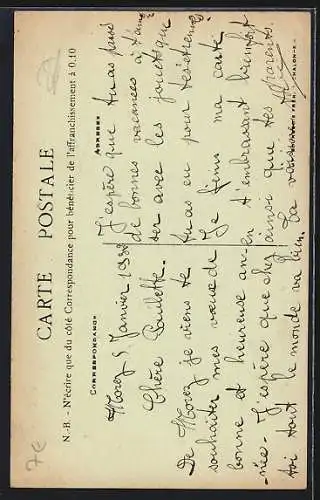 CARTE POSTALE
N.-B. - N'écrire que du côté Correspondance pour bénéficier de l'affranchissement à 0.10
CORRESPONDANCE
Morez 5 Janvier 1938
Chère Paulette.
De Morez je viens te
souhaiter mes vœux de
bonne et heureuse an-
née. J'espère que chez
toi tout le monde va bien.
ADRESSE
J'espère que tu as passé
de bonnes vacances à t'amu
ser avec les jouets que
tu as eu pour tes étrennes
Je finis ma carte
en t'embrassant bientôt
ainsi que tes parents.
Ta
7€